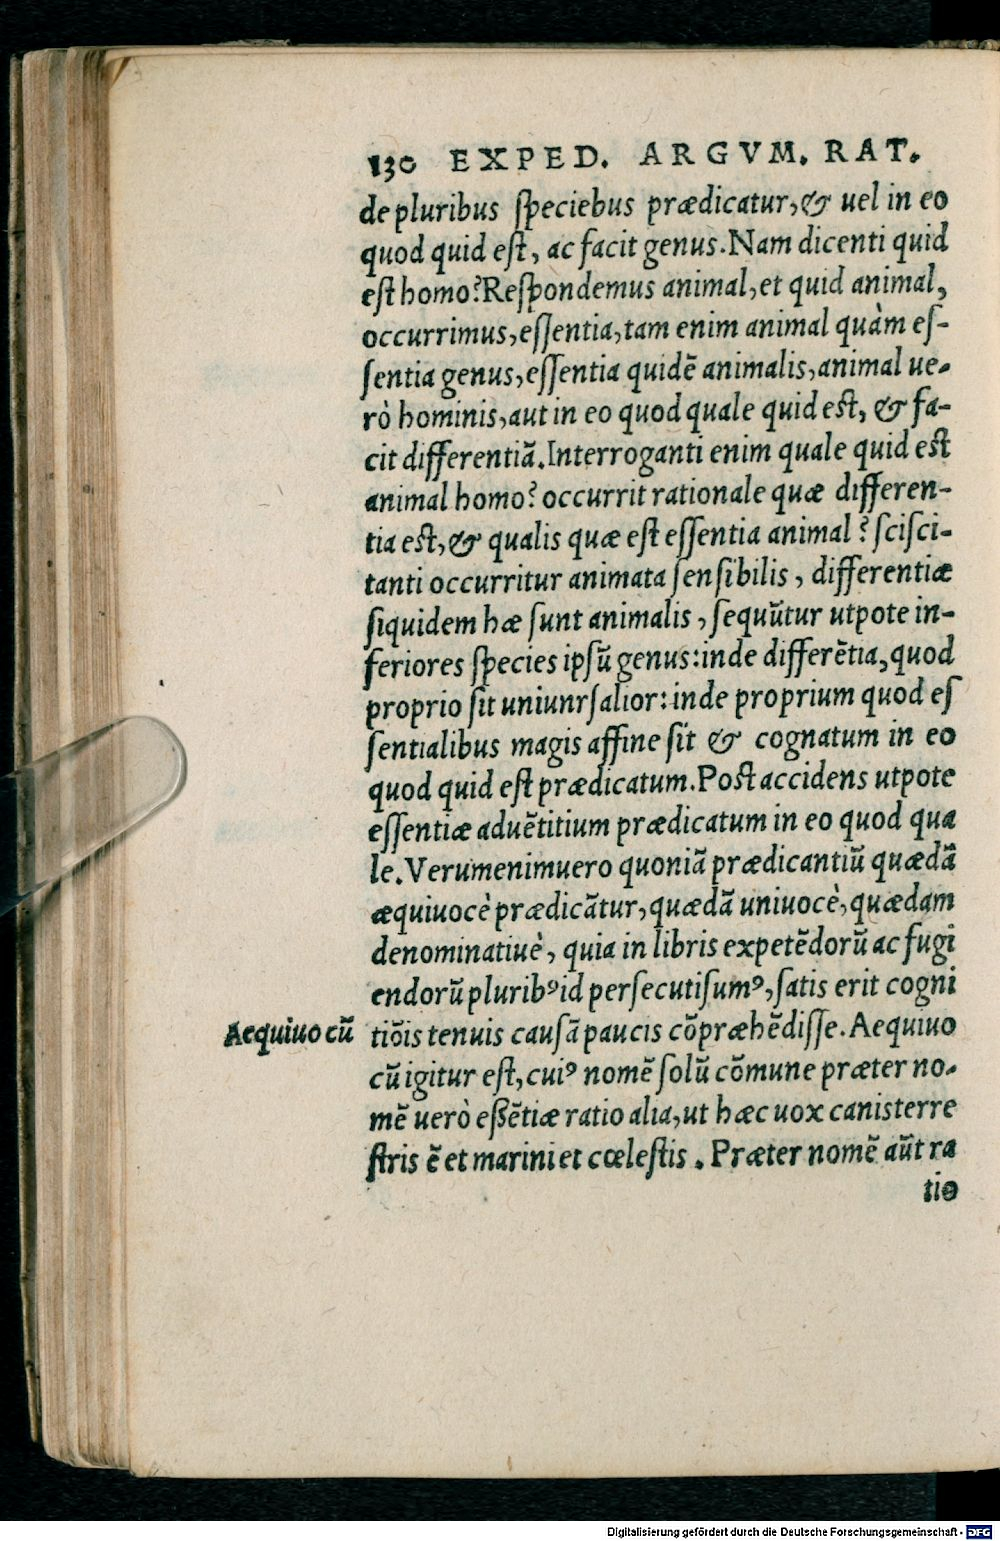 130 EXPED. ARGVM. RAT.
de pluribus ſpeciebus prædicatur,& uel in eo
quod quid eſt, ac facit genus. Nam dicenti quid
eſt homo? Reſpondemus animal, et quid animal,
occurrimus, eſſentia, tam enim animal quàm eſ-
ſentia genus, eſſentia quidẽ animalis, animal ue-
rò hominis, aut in eo quod quale quid eſt, & fa-
cit differentiã. Interroganti enim quale quid eſt
animal homo? occurrit rationale quæ differen-
tia eſt, & qualis quæ eſt eſſentia animal? ſciſci-
tanti occurritur animata ſenſibilis, differentiæ
ſiquidem hæ ſunt animalis, ſequũtur utpote in-
feriores ſpecies ipſũ genus: inde differẽtia, quod
proprio ſit uniunrſalior: inde proprium quod eſ
ſentialibus magis affine ſit & cognatum in eo
quod quid eſt prædicatum. Poſt accidens utpote
eſſentiæ aduẽtitium prædicatum in eo quod qua
le. Verumenimuero quoniã prædicantiũ quædã
æquiuocè prædicãtur, quædã uniuocè, quædam
denominatiuè, quia in libris expetẽdorũ ac fugi
endorũ pluribꝰ id perſecuti ſumꝰ, ſatis erit cogni
Aequiuocũ
tiõis tenuis cauſã paucis cõpræhẽdiſſe. Aequiuo
cũ igitur eſt, cuiꝰ nomẽ ſolũ cõmune præter no-
mẽ uerò eßẽtiæ ratio alia, ut hæc uox canis terre
ſtris ẽ et marini et cœleſtis. Præter nomẽ aũt ra
tio
Digitalisierung gefördert durch die Deutsche Forschungsgemeinschaft - DFG